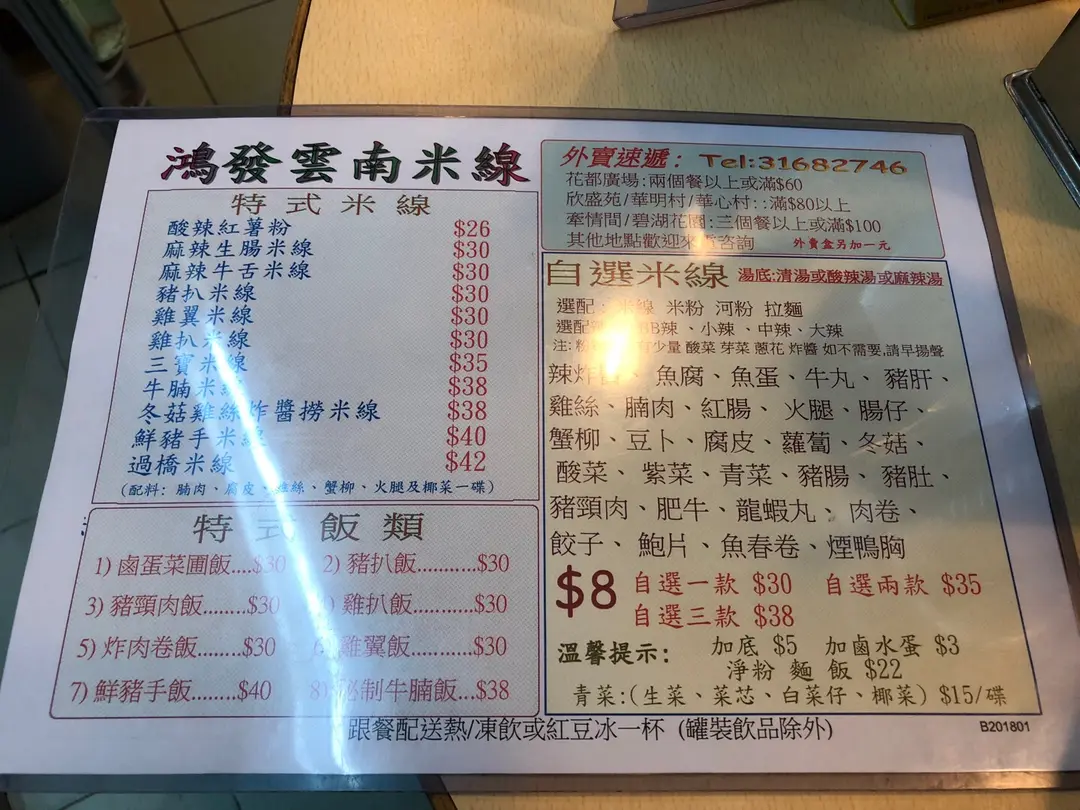 鴻發雲南米線
特式米線
酸辣紅薯粉 $26
麻辣生腸米線 $30
麻辣牛舌米線 $30
豬扒米線 $30
雞翼米線 $30
雞扒米線 $30
三寶米線 $35
牛腩米線 $38
冬菇雞絲炸醬撈米線 $38
鮮豬手米線 $40
過橋米線 $42
(配料: 腩肉、腐皮、雞絲、蟹柳、火腿及椰菜一碟)
特式飯類
1) 鹵蛋菜圃飯....$30 2) 豬扒飯...........$30
3) 豬頸肉飯........$30 雞扒飯...........$30
5) 炸肉卷飯........$30 雞翼飯...........$30
7) 鮮豬手飯........$40 8) 秘制牛腩飯...$38
外賣速遞: Tel:31682746
花都廣場:兩個餐以上或滿$60
欣盛苑/華明村/華心村::滿$80以上
牽情間/碧湖花園:三個餐以上或滿$100
其他地點歡迎來 咨詢 外賣盒另加一元
自選米線 湯底:清湯或酸辣湯或麻辣湯
選配: 米線 米粉 河粉 拉麵
選配 BB辣、小辣、中辣、大辣
注: 粉 有少量 酸菜 芽菜 蔥花 炸醬 如不需要,請早揚聲
辣炸醬、魚腐、魚蛋、牛丸、豬肝、
雞絲、腩肉、紅腸、火腿、腸仔、
蟹柳、豆卜、腐皮、蘿蔔、冬菇、
酸菜、紫菜、青菜、豬腸、豬肚、
豬頸肉、肥牛、龍蝦丸、肉卷、
餃子、鮑片、魚春卷、煙鴨胸
$8 自選一款 $30 自選兩款 $35
自選三款 $38
溫馨提示: 加底 $5 加鹵水蛋 $3
淨粉 麵 飯 $22
青菜:(生菜、菜芯、白菜仔、椰菜) $15/碟
跟餐配送熱/凍飲或紅豆冰一杯 (罐裝飲品除外)
B201801